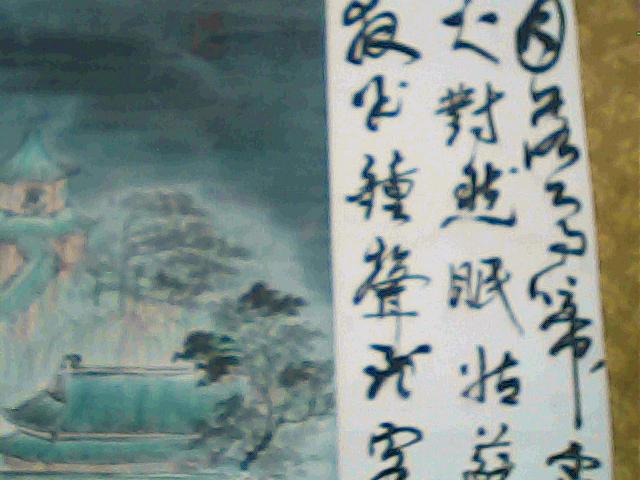 月落烏啼
火對愁眠姑蘇
夜半鐘聲到客